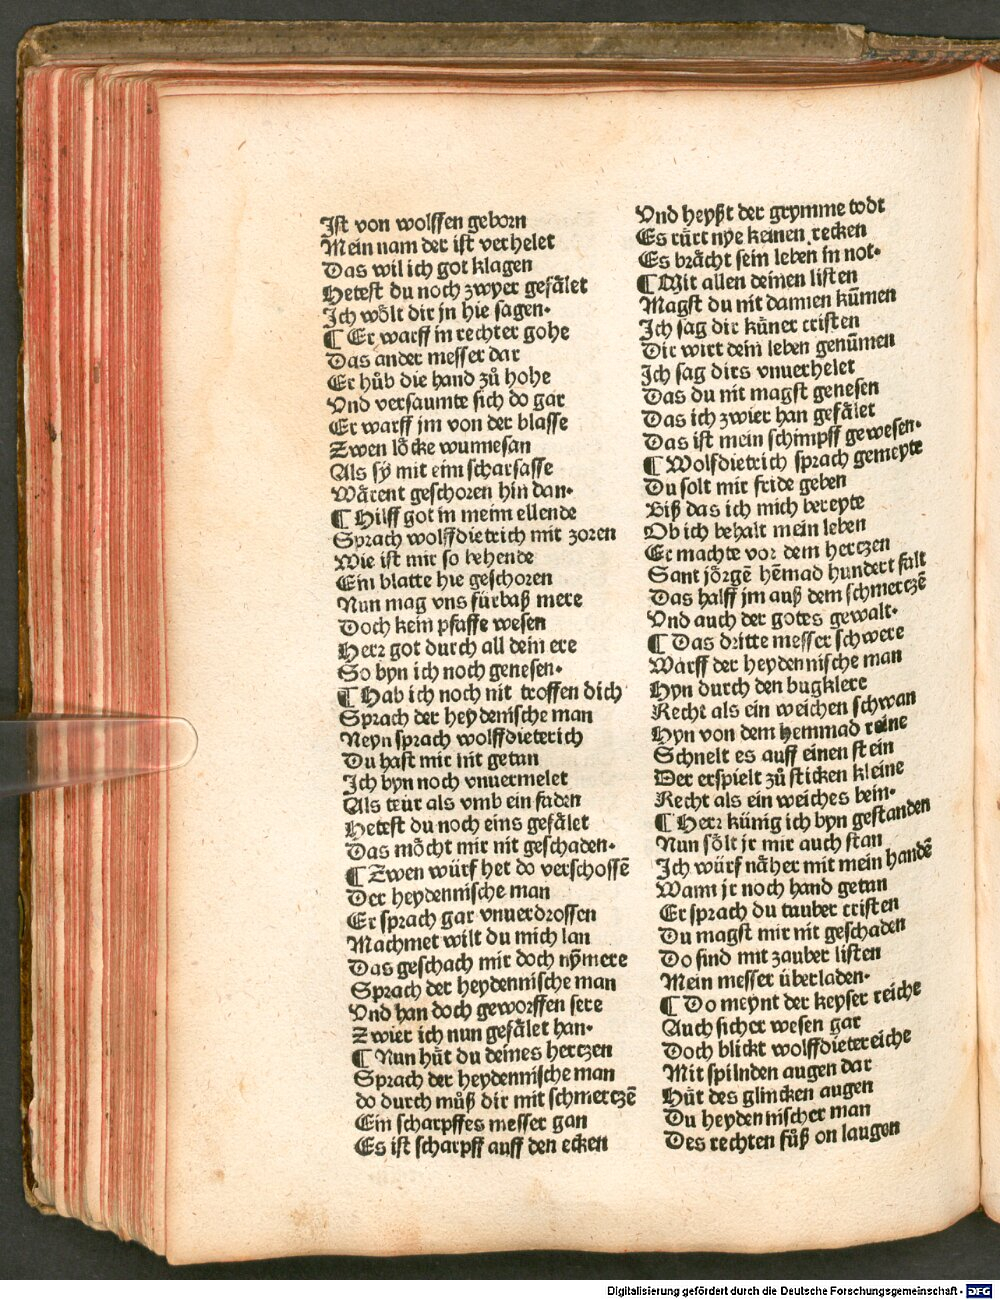 Ist von wolffen geborn
Mein nam der ist verhelet
Das wil ich got klagen
Hetest du noch zwyer gefålet
Ich wölt dir jn hie sagen.
¶ Er warff in rechter gohe
Das ander messer dar
Er hůb die hand zů hohe
Vnd versaumte sich do gar
Er warff jm von der blasse
Zwen löcke wunnesan
Als sÿ mit eim scharsasse
Wårent geschoren hin dan.
¶ Hilff got in meim ellende
Sprach wolffdietrich mit zoren
Wie ist mir so behende
Ein blatte hie geschoren
Nun mag vns fürbaß mere
Doch kein pfaffe wesen
Herz got durch all dein ere
So byn ich noch genesen.
¶ Hab ich noch nit troffen dich
Sprach der heydenische man
Neyn sprach wolffdieterich
Du hast mir nit getan
Ich byn noch vnuermelet
Als teür als vmb ein faden
Hetest du noch eins gefålet
Das möcht mir nit geschaden.
¶ Zwen würf het do verschossē
Der heydennische man
Er sprach gar vnuerdrossen
Machmet wilt du mich lan
Das geschach mir doch nÿmere
Sprach der heydennische man
Vnd han doch geworffen sere
Zwier ich nun gefålet han.
¶ Nun hüt du deines hertzen
Sprach der heydennische man
do durch můß dir mit schmertzē
Ein scharpffes messer gan
Es ist scharpff auff den ecken
Vnd heyßt der grymme todt
Es rürt nye keinen recken
Es brächt sein leben in not.
¶ Mit allen deinen listen
Magst du nit dannen kūmen
Ich sag dir küner cristen
Dir wirt dein leben genūmen
Ich sag dirs vnuerhelet
Das du nit magst genesen
Das ich zwier han gefålet
Das ist mein schimpff gewesen.
¶ Wolfdietrich sprach gemeyte
Du solt mir fride geben
Biß das ich mich bereyte
Ob ich behalt mein leben
Er machte vor dem hertzen
Sant jörgē hēmad hundert falt
Das halff jm auß dem schmertzē
Vnd auch der gotes gewalt.
¶ Das dritte messer schwere
Warff der heydennische man
Hyn durch den bugklere
Recht als ein weichen schwan
Hyn von dem hemmad reine
Schnelt es auff einen stein
Der erspielt zů sticken kleine
Recht als ein weiches bein.
¶ Herz künig ich byn gestanden
Nun sölt jr mir auch stan
Ich würf näher mit mein handē
Wann jr noch hand getan
Er sprach du tauber cristen
Du magst mir nit geschaden
Do sind mit zauber listen
Mein messer überladen.
¶ Do meynt der keyser reiche
Auch sicher wesen gar
Doch blickt wolffdietereiche
Mit spilnden augen dar
Hüt des glincken augen
Du heydennischer man
Des rechten fůß on laugen
Digitalisierung gefördert durch die Deutsche Forschungsgemeinschaft - DFG